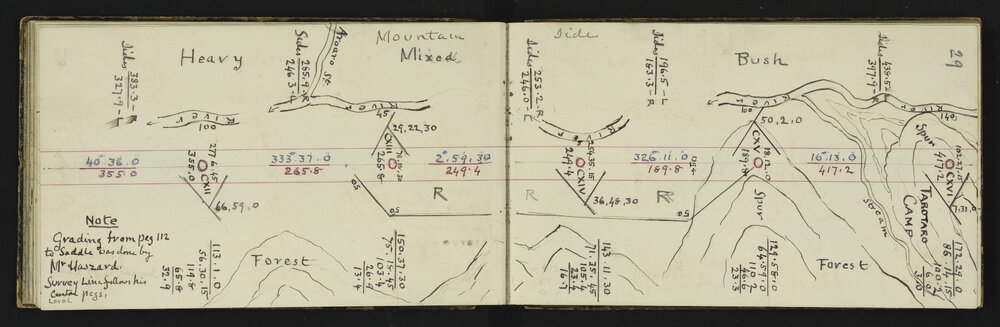 29
Sides
393.3-R
327.9-L
Heavy
Sides
285.9-R
246.3-L
St.
Mountain
Mixed
Side
Sides
253.2-R
246.0-L
Sides
196.5-L
183.3-R
Bush
Sides
438.5-L
397.9-R
River
100
River
45
River
River
100
River
140
29,22,30
50,2,0
Spur
40.36.0
355.0
27.6.45
355.0
CXII
333.37.0
265.8
CXIII
265.8
2.59.30
249.4
249.4
CXIV
326.11.0
189.8
CXV
189.8
16.13.0
417.2
417.2
CXVI
66,59,0
50
R
50
R
36,48,30
R
50
Spur
Stream
TAROTARO
CAMP
7.31.0
Note
Grading from peg 112
to Saddle was done by
Mr Haszard.
Survey Line follows his
Control pegs.
Level
113.1.0
56.30.15
119.8
65.8
32.9
Forest
150.37.30
75.18.45
103.4
26.4
13.4
143.11.30
71.35.45
105.4
23.4
16.7
129.58.0
64.59.0
110.2
46.6
23.3
Forest
172.29.0
86.14.15
100.2
6.0
3.0